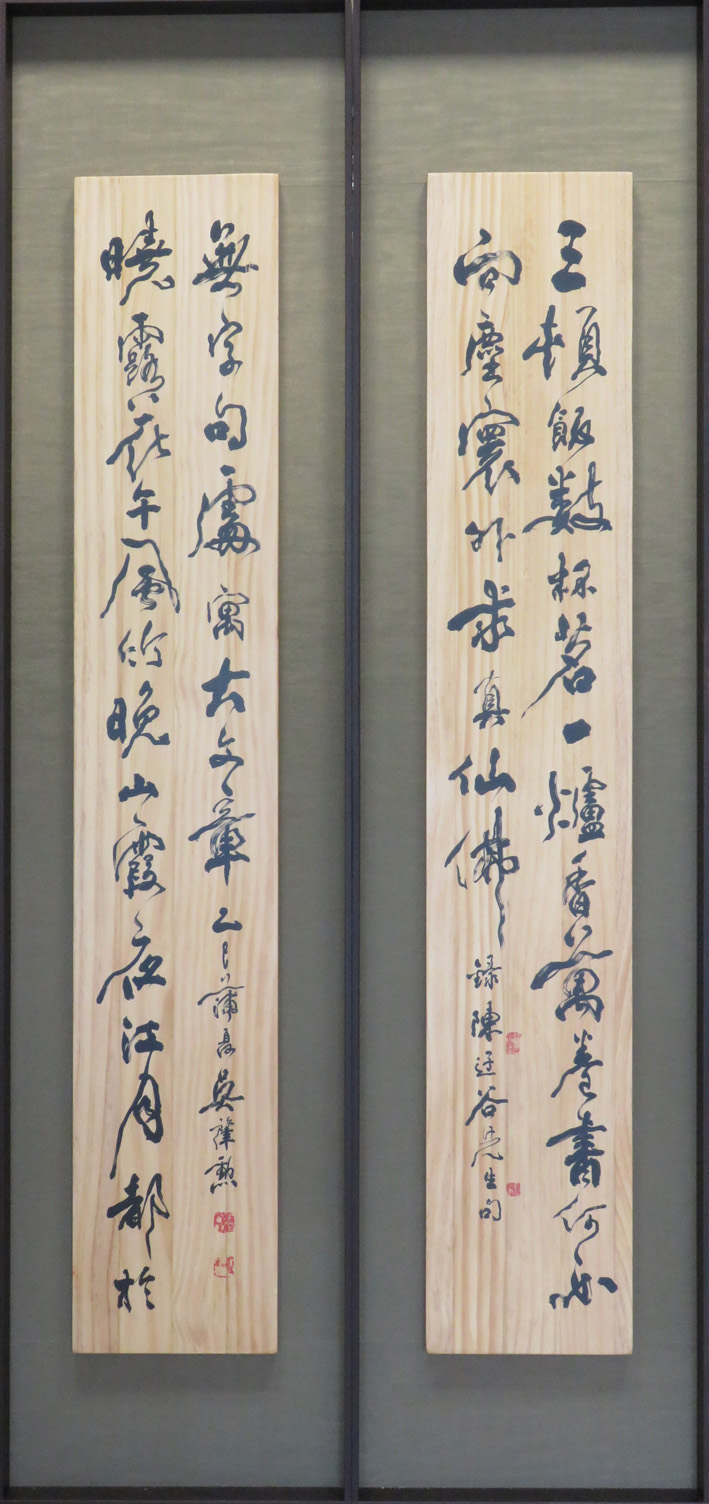 三頓飯數杯茗一爐香萬卷書何必
向塵寰外求真仙佛 錄陳迂谷先生句
曉露花午風竹晚山霞夜江月都於
無字句處寓大文章 乙巳蒲吳肇勳